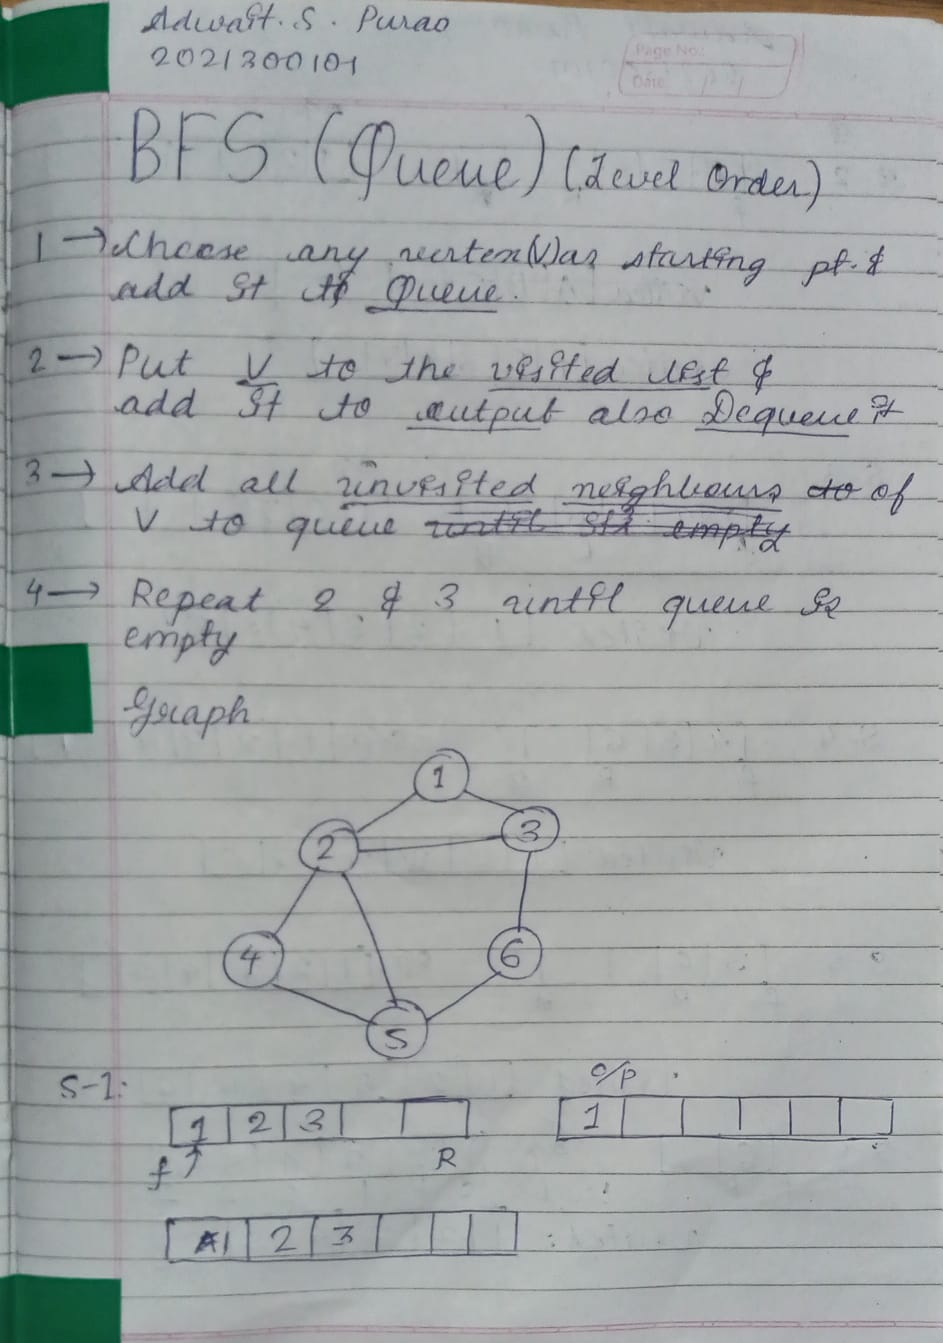 Adwait. S. Purao
2021300101
Page No.:
Date:
BFS (Queue) (Level Order)
1 → Choose any vertex(V) as starting pt. &
add it to Queue.
2 → Put V to the visited list &
add it to output also Dequeue it
3 → Add all unvisited neighbours to of
V to queue until its empty
4 → Repeat 2 & 3 until queue is
empty
Graph
1
2 3
4 6
5
S-1:
O/P
1 2 3 1
f R
1 2 3